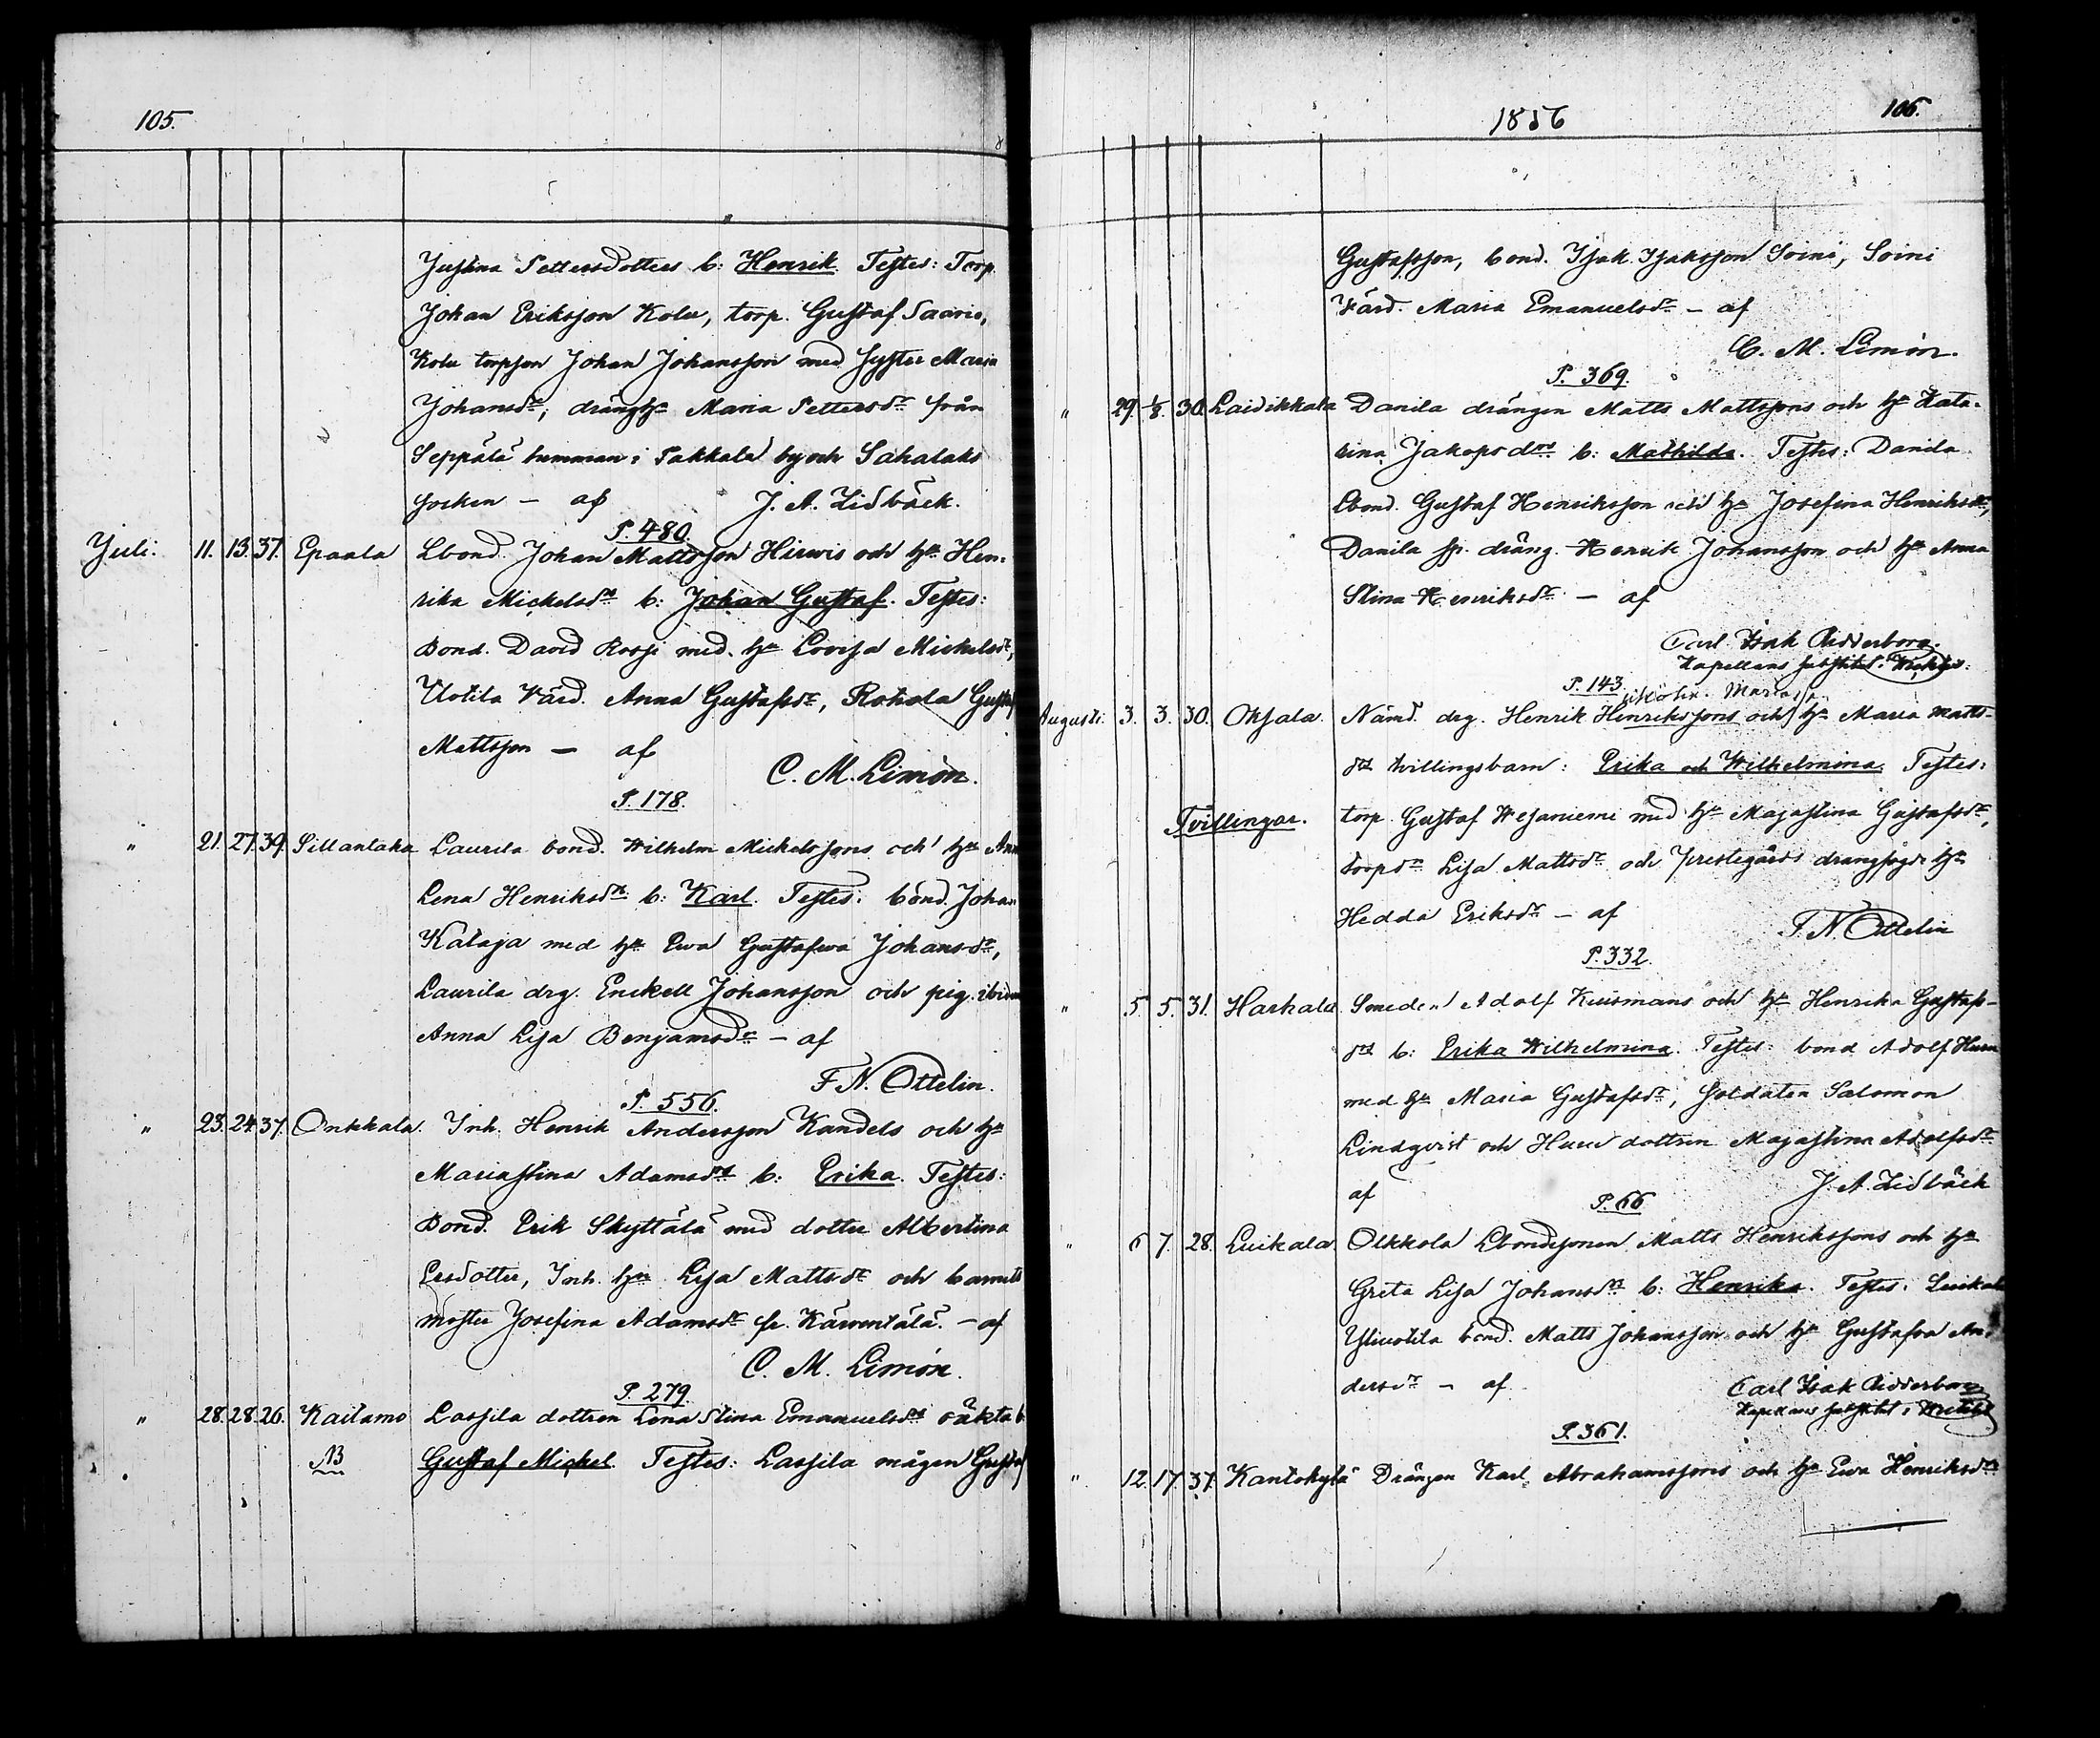 105.
Justina Pettersdotters b: Henrik. Testes: Torp.
Johan Eriksson Kolu, torp. Gustaf Saario,
Kolu torpson Johan Johansson med syster Maria
Johansdr, dränghu Maria Pettersdr från
Seppälä hemman i Pakkala by och Sahalaks
socken – af J. A. Lidbäck.
P. 480.
Juli. 11. 13. 37. Epaala Lbond. Johan Mattsson Hirwis och hu Hen-
rika Mickelsdrs b: Johan Gustaf. Testes:
Bond. David Rossi med hu Lovisa Mickelsdr,
Uotila Värd. Anna Gustafsdr, Rohola Gustaf
Mattsson – af
C. M. Limón.
P. 178.
" 21. 27. 39. Sillantaka Laurila bond. Wilhelm Mickelssons och hu Anna
Lena Henriksdrs b: Karl. Testes: bond. Johan
Kataja med hu Ewa Gustafwa Johansdr,
Laurila drg. Enckell Johansson och pig. ibidem
Anna Lisa Benjamsdr – af
F N. Ottelin.
P. 556.
" 23. 24. 37. Onkkala. Inh. Henrik Andersson Kandels och hu
Mariastina Adamsdrs b: Erika. Testes:
Bond. Erik Skyttälä med dotter Albertina
Ersdotter, Inh. hu Lisa Mattsdr och barnets
moster Josefina Adamsdr fr. Kärwentälä. – af
C. M. Limón.
P. 279.
" 28. 28. 26. Kailamo Lassila dottren Lena Stina Emanuelsdrs oäkta b.
NB Gustaf Mickel. Testes: Lassila mågen Gustaf
1856 106.
Gustafsson, bond. Isak Isaksson Soini, Soini
Värd. Maria Emanuelsdr – af
C. M. Limón.
P. 369.
" 29. 1/8. 30. Laidikkala Danila drängen Matts Mattssons och hu Kata-
rina Jakopsdrs b: Mathilda. Testes: Danila
Lbond. Gustaf Henriksson och hu Josefina Henriksdr,
Danila sp. dräng. Henrik Johansson och hu Anna
Stina Henriksdr – af
Carl Isak Ridderborg.
Kapellans substitut i
P. 143.
Augusti. 3. 3. 30. Ohsala. Nämd. drg. Henrik Henrikssons och hu Maria Matts-
drs tvillingsbarn: Erika och Wilhelmina. Testes:
Tvillingar. torp. Gustaf Wesaniemi med hu Majastina Gustafsdr,
torpdr Lisa Mattsdr och prestegårds drängfogde hu
Hedda Eriksdr – af F. N. Ottelin
P. 332.
" 5. 5. 31. Harhala Smeden Adolf Kuismans och hu Henrika Gustafs-
drs b: Erika Wilhelmina. Testes: bond Adolf Huru
med hu Maria Gustafsdr, Soldaten Salomon
Lindqvist och Huru dottren Majastina Adolfsdr
af J. A. Lidbäck
P. 66
" 6 7. 28. Luikala Olkkola Lbondesonen Matts Henrikssons och hu
Greta Lisa Johansdrs b: Henrika. Testes: Luikala
Yliuotila bond. Matts Johansson och hu Gustafva An-
dersdr – af Carl Isak Ridderborg
Kapellans substitut i
P. 361.
" 12. 17. 37. Kantokylä Drängen Karl Abrahamssons och hu Ewa Henriksdrs